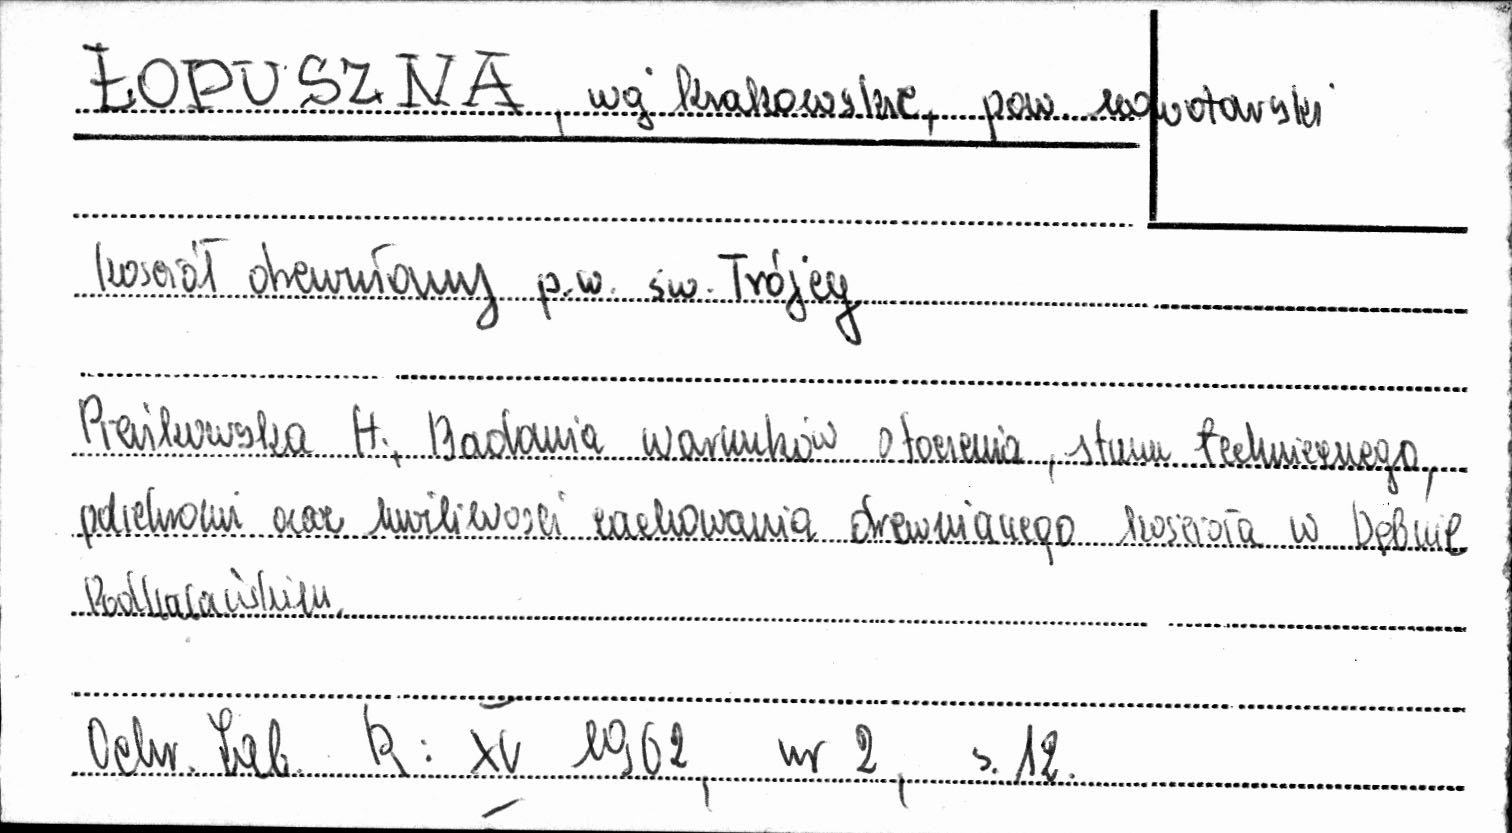 ŁOPUSZNA, wg krakowskie, pow. nowotarski
kościół drewniany p.w. św. Trójcy
Pieńkowska H., Badania warunków otoczenia, stanu technicznego,
polichromi oraz możliwości zachowania drewnianego kościoła w Dębnie
Podhalańskim.
Ochr. Zab. R: XV 1962, nr 2, s. 12.